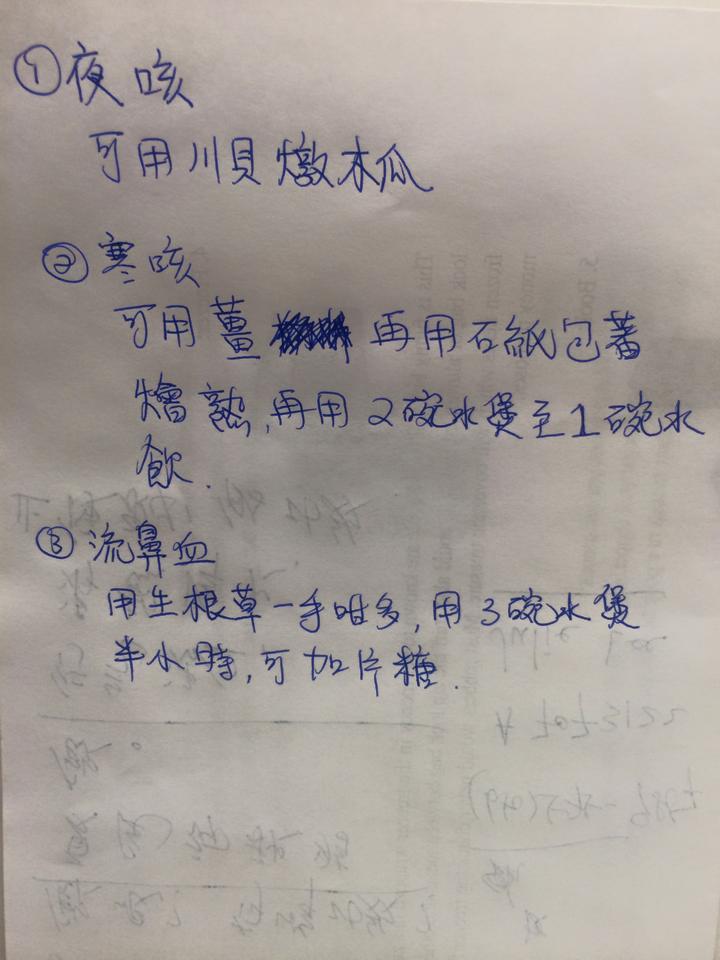 ①夜咳
可用川貝燉木瓜
②寒咳
可用薑 再用石紙包著
燴熟,再用2碗水煲至1碗水
飲.
③流鼻血
用生根草一手咁多,用3碗水煲
半小時,可加片糖.